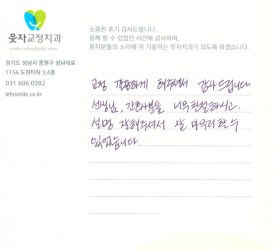 소중한 후기 감사드립니다.
함께 할 수 있었던 시간에 감사하며,
환자분들의 소리에 귀 기울이는 웃자치과가 되도록 하겠습니다.
웃자교정치과
경기도 성남시 중원구 성남대로
1156 도원타워 3,4층
031 606 0282
letssmile.co.kr
교정 깔끔하게 해주셔서 감사드립니다
선생님, 간호사분들 너무 친절하시고.
설명 잘해주셔서 잘 마무리할 수
있었습니다.